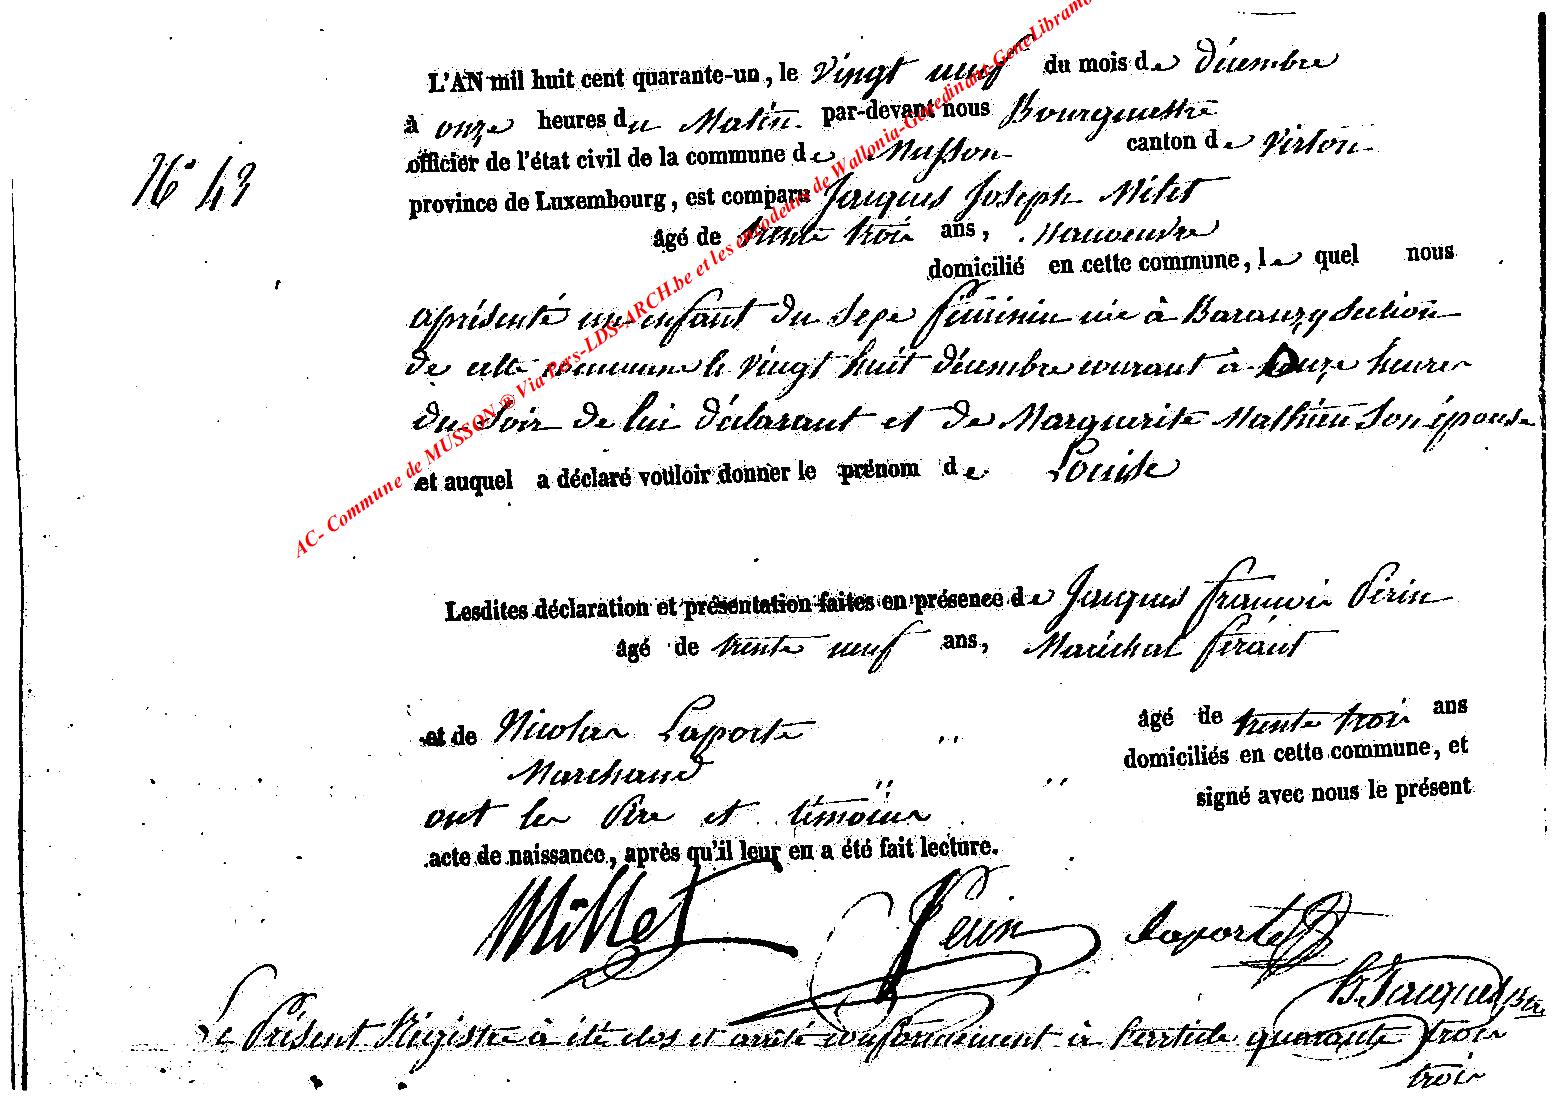 L'AN mil huit cent quarante-un, le vingt neuf du mois de décembre
à onze heures du Matin par-devant nous Bourguestre
officier de l'état civil de la commune de Musson canton de Virton
N° 43
province de Luxembourg, est comparu Jacques Joseph Milet
âgé de trente trois ans, Manoeuvre
domicilié en cette commune, le quel nous
a présenté un enfant du sexe féminin née à Baranzy section
de cette commune le vingt huit décembre courant à onze heures
du soir de lui déclarant et de Marguerite Mathieu son épouse
et auquel a déclaré vouloir donner le prénom de Louise
AC- Commune de MUSSON @ Via Pers-LDS-ARCH.be et les encodeurs de Wallonia-Genedinant-GeneLibramo
Lesdites déclaration et présentation faites en présence de Jacques françois Périn
âgé de trente neuf ans, Maréchal férant
et de Nicolas Laporte âgé de trente trois ans
Marchand domiciliés en cette commune, et
ont les Père et témoins signé avec nous le présent
acte de naissance, après qu'il leur en a été fait lecture.
Millet Perin Laporte
Jacques
Le Présent Régistre à été clos et arrêté conformément à l'article quarante trois
trois